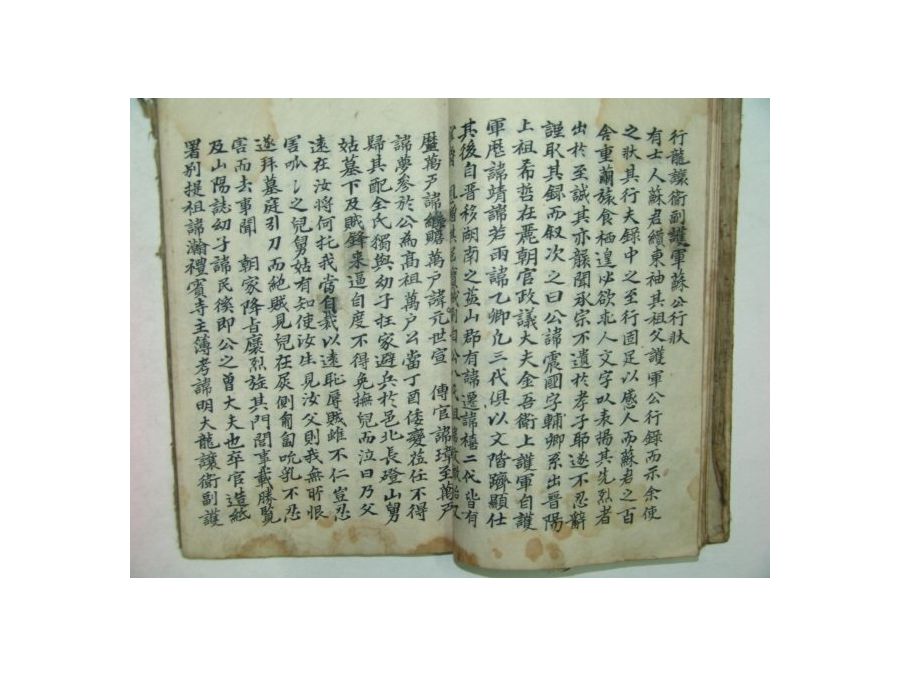 行龍讓衛副護軍蘇公行狀
有士人蘇君纘東袖其祖父護軍公行錄而示余使
之狀其行夫錄中之至行固足以感人而蘇君之百
舍重繭旅食栖遑必欲乖人文字以表揚其先烈者
出於至誠其亦聞承宗不遺於孝子耶遂不忍辭
謹取其錄而叙次之曰公諱震國字輔卿系出晋陽
上祖希哲在麗朝官政議大夫金吾衛上護軍自護
軍歷諱靖諱若雨諱乙卿凡三代俱以文階躋顯仕
其後自晋移嗣南之益山郡有諱遷諱禧二代皆有
歷萬戶諱賜萬戶諱元世宣 傳官諱瑋至萬戶
諱夢參於公為高祖萬戶公當丁酉倭變莅任不得
歸其配全氏獨與幼子在家避兵於邑北長登山舅
姑墓下及賊鋒来逼自度不得免撫兒而泣曰乃父
遠在汝將何托我當自裁以遠恥辱賊雖不仁豈忍
害呱〻之兒舅姑有知使汝生見汝父則我無所恨
遂拜墓庭引刀而絶賊見兒在屍側匍匐吮乳不忍
害而去事聞 朝家降旨褒烈旌其門閭事載勝覧
及山陽誌幼子諱民後即公之曽大夫也卒官造紙
署别提祖諱瀚禮賓寺主簿考諱明大龍讓衛副護